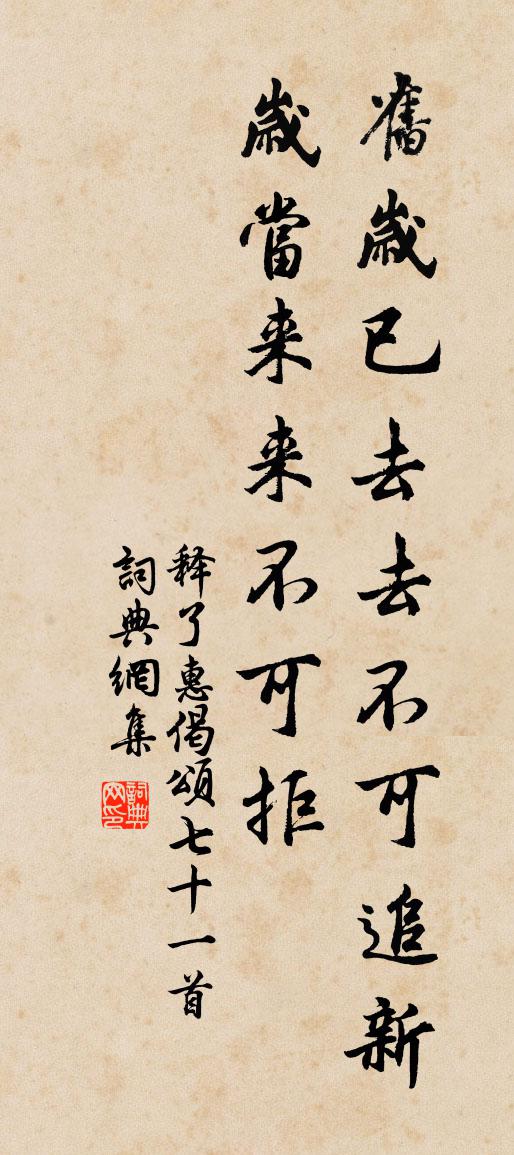 舊歲已去去不可追新
歲當来来不可拒
释了惠偈頌七十一首
詞典網集
詞典
网印